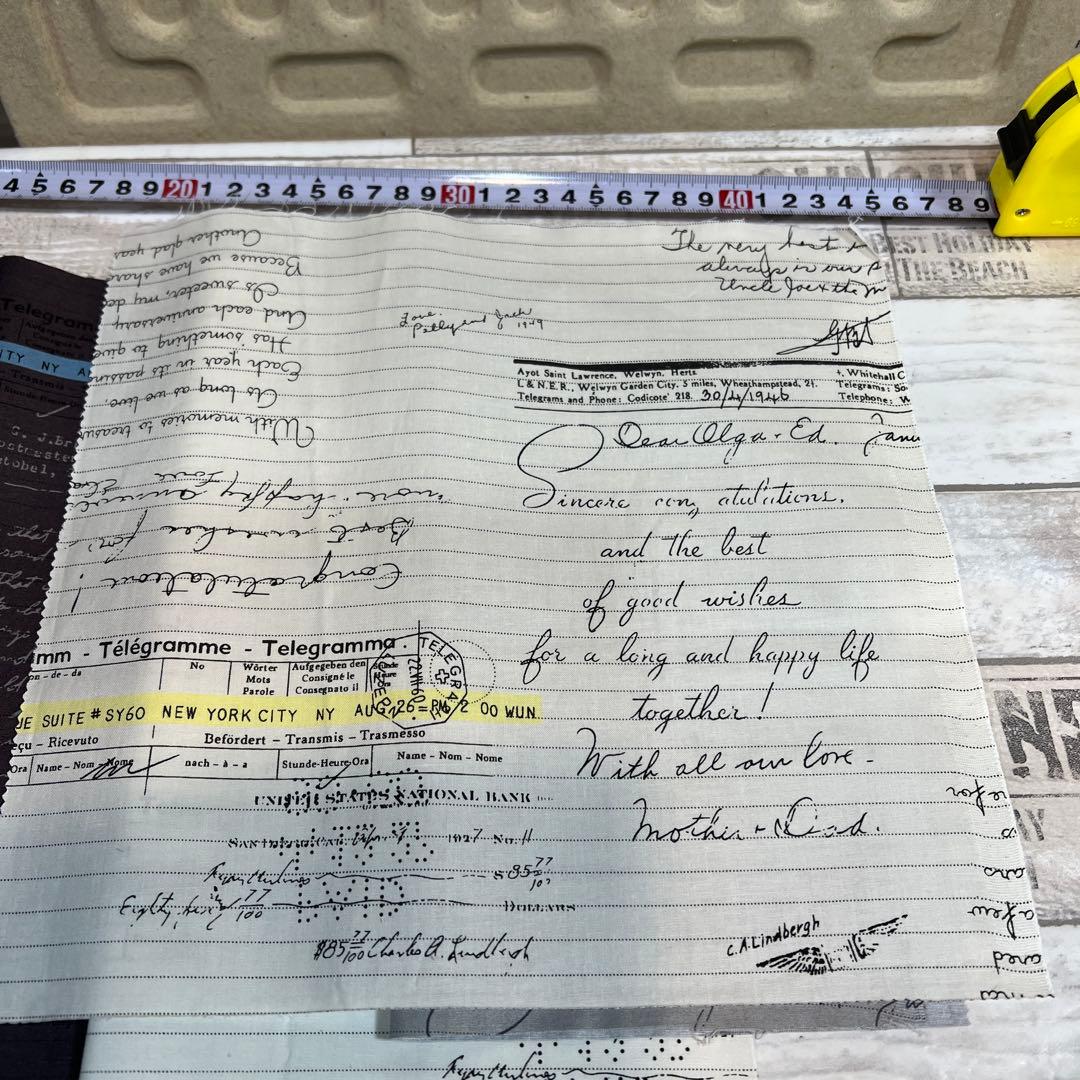 4 5 6 7 8 9 20 1 2 3 4 5 6 7 8 9 30 1 2 3 4 5 6 7 8 9 40 1 2 3 4 5 6 7 8 9
BEST HOLIDAY
THE BEACH
The very best
always is our
Uncle Joe & the
Another glad year
Because we have share
Is sweeter, my de
And each anniversary
Has something to give
Each year in its passin
As long as we live,
With memories to treasure
more happy
Love
Best wishes for
Congratulations!
Love
and Jack
1949
Ayot Saint Lawrence, Welwyn, Herts
L & N.E.R., Welwyn Garden City, 5 miles, Wheathampstead, 2½.
Telegrams and Phone: Codicote' 218. 30/4/1946
4, Whitehall C
Telegrams: So
Telephone: W
Dear Olga & Ed. Janu
Sincere con atulations,
and the best
of good wishes
for a long and happy life
together!
With all our love -
Mother & Dad.
mm - Télégramme - Telegramma
on - de - da
No
Wörter
Mots
Parole
Aufgegeben den
Consigné le
Consegnato il
Stunde
Heure
Ora
TELEGRA
22.VII.60
UE SUITE # SY60 NEW YORK CITY NY AUG 26 = PM 2 00 WUN
eçu - Ricevuto
Befördert - Transmis - Trasmesso
Ora
Name - Nom - Nome
nach - à - a
Stunde-Heure-Ora
Name - Nom - Nome
UNITED STATES NATIONAL BANK
1927 No. 11
$ 85 77/100
Eighty five 77/100
DOLLARS
$85 77/100 Charles A. Lindbergh
C.A.Lindbergh
Telegram
ITY NY A
Transmis
G. J.Br
tobel,
that
That
e for
ars
a few
ared